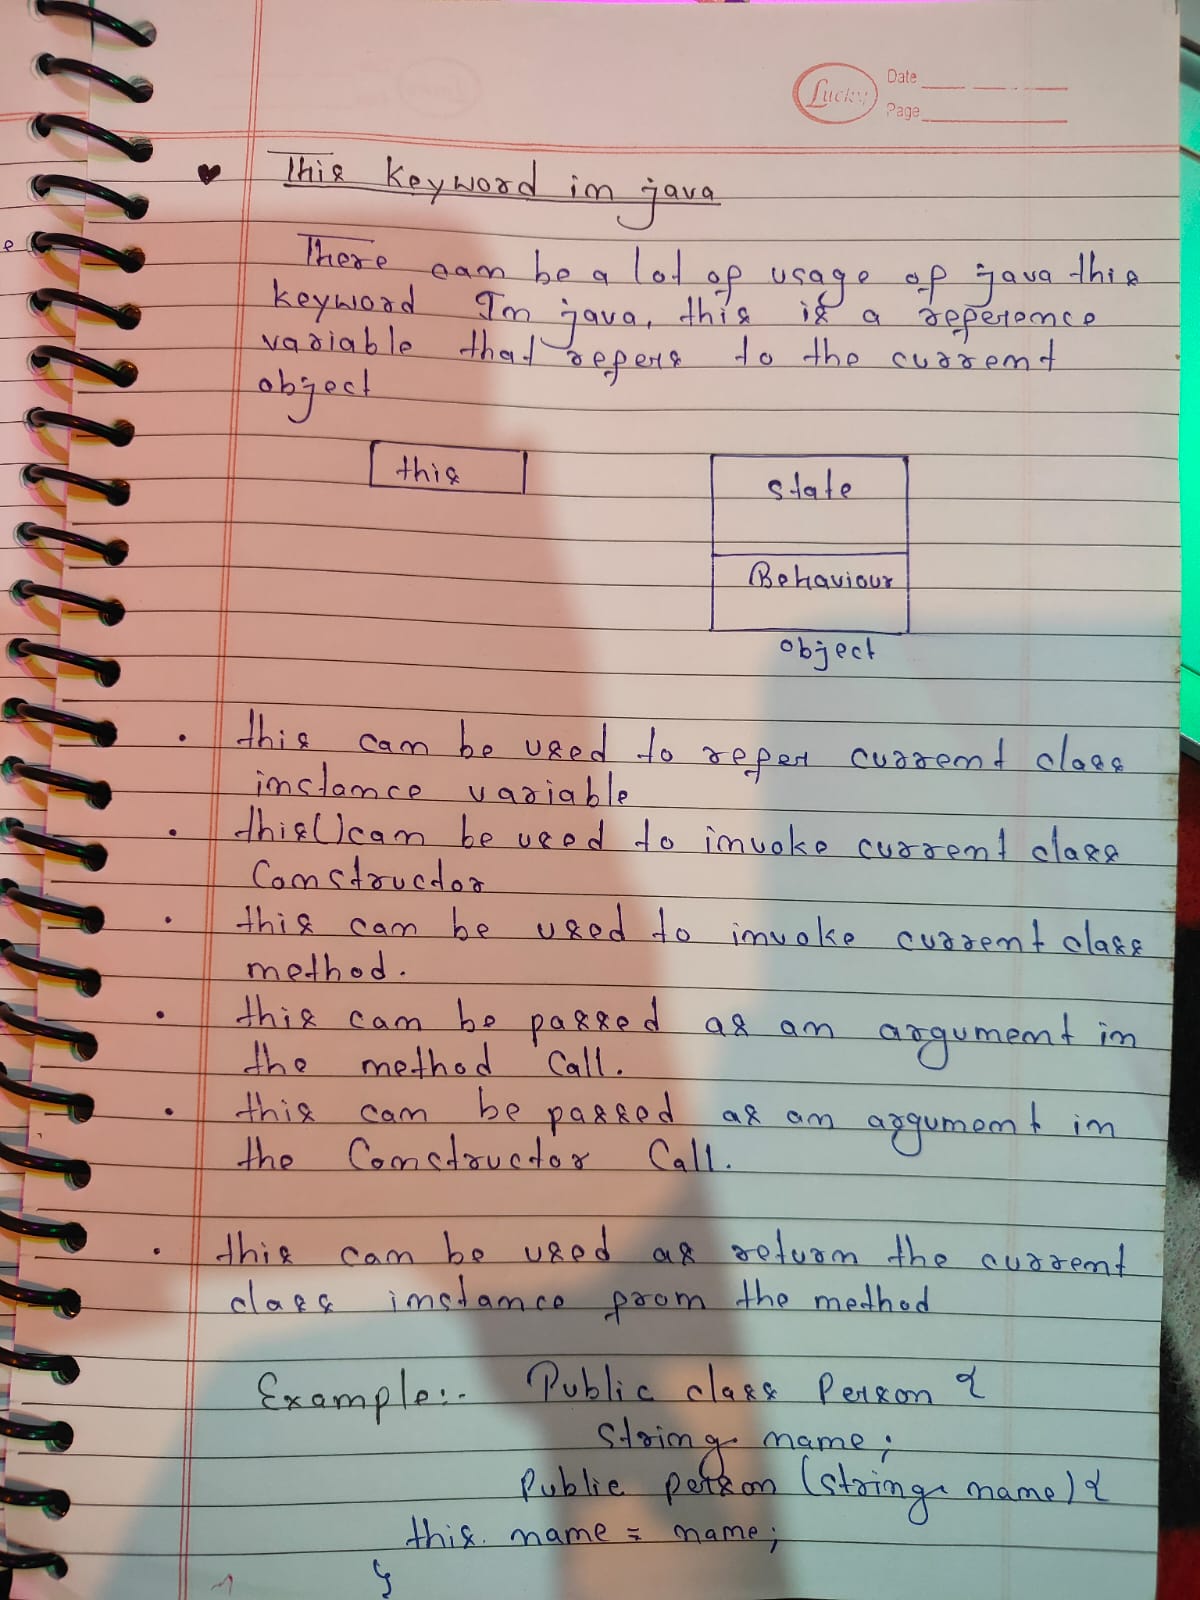 Lucky
Date
Page
This keyword in java
There can be a lot of usage of java this
keyword In java, this is a reference
variable that refers to the current
object
this
State
Behaviour
object
• this can be used to refer current class
instance variable
• this() can be used to invoke current class
Constructor
• this can be used to invoke current class
method.
• this can be passed as an argument in
the method Call.
• this can be passed as an argument in
the Constructor Call.
• this can be used as return the current
class instance from the method
Example:- Public class Person {
String name;
Public person (string name) {
this. name = name;
}